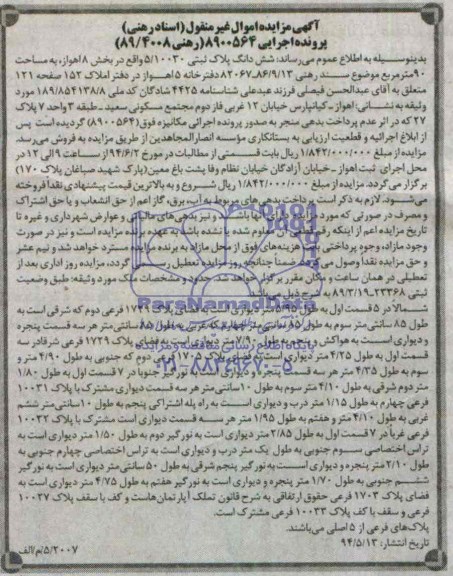 آگهی مزایده اموال غیر منقول (اسناد رهنی)
پرونده اجرایی ۸۹۰۰۵۶۴ (رهنی ۸۹/۴۰۰۸)
بدینوسیله به اطلاع عموم می‌رساند: شش دانگ پلاک ثبتی ۵/۱۰۰۳۰ واقع در بخش ۸ اهواز، به مساحت
۹۰ مترمربع موضوع سند رهنی ۸۲۰۶۷-۸۶/۹/۱۳ دفترخانه ۵ اهواز در دفتر املاک ۱۵۲ صفحه ۱۲۱
متعلق به آقای عبدالحسن فیصلی فرزند عبدعلی شناسنامه ۴۴۲۵ شادگان کد ملی ۱۸۹/۸۵۴۱۳۸/۸ مورد
وثیقه به نشانی: اهواز ـ کیانپارس خیابان ۱۲ غربی فاز دوم مجتمع مسکونی سعید ـ طبقه ۳ واحد ۷ پلاک
۲۷ که در اثر عدم پرداخت بدهی منجر به صدور پرونده اجرائی مکانیزه فوق (۸۹۰۰۵۶۴) گردیده است پس
از ابلاغ اجرائیه و قطعیت ارزیابی به بستانکاری مؤسسه انصارالمجاهدین از طریق مزایده به فروش می‌رسد.
مزایده از مبلغ ۱/۸۴۲/۰۰۰/۰۰۰ ریال بابت قسمتی از مطالبات در مورخ ۹۴/۶/۲ از ساعت ۹ الی ۱۲ در
محل اجرای ثبت اهواز ـ خیابان آزادگان خیابان نظام وفا پشت باغ معین (پارک شهید صباغان پلاک ۱۷۰)
برگزار می‌گردد. مزایده از مبلغ ۱/۸۴۲/۰۰۰/۰۰۰ ریال شروع و به بالاترین قیمت پیشنهادی نقداً فروخته
می‌شود. لازم به ذکر است پرداخت بدهی‌های مربوط به آب، برق، گاز اعم از حق انشعاب و یا حق اشتراک
و مصرف در صورتی که مورد مزایده دارای آنها باشد و نیز بدهی‌های مالیاتی و عوارض شهرداری و غیره تا
تاریخ مزایده اعم از اینکه رقم قطعی آن معلوم شده یا نشده باشد به عهده برنده مزایده است و نیز در صورت
وجود مازاد، وجوه پرداختی بابت هزینه‌های فوق از محل مازاد به برنده مزایده مسترد خواهد شد و نیم عشر
و حق مزایده نقداً وصول می‌گردد ضمناً چنانچه روز مزایده تعطیل رسمی گردد، مزایده روز اداری بعد از
تعطیلی در همان ساعت و مکان مقرر برگزار خواهد شد. حدود و مشخصات ملک مورد وثیقه: طبق وضعیت
ثبتی ۲۳۳۶۸-۸۹/۳/۱۹ به شرح ذیل می‌باشد:
شمالاً در ۵ قسمت اول به طول ۵/۹۵ متر دیواری است به فضای پلاک ۱۷۲۹ فرعی دوم که شرقی است به
طول ۸۵ سانتی‌متر سوم به طول ۸۵ سانتی‌متر چهارم که غربی به طول ۸۵ سانتی‌متر هر سه قسمت پنجره
و دیواری است به هواکش پنجم به طول ۲/۹۰ متر دیواری است به فضای پلاک ۱۷۲۹ فرعی شرقاً در سه
قسمت اول به طول ۴/۲۵ متر دیواری است به فضای پلاک ۱۷۰۵ فرعی دوم که جنوبی به طول ۴/۹۰ متر و
سوم به طول ۴/۳۵ متر هر سه قسمت پنجره و دیواری است به نورگیر جنوباً در ۷ قسمت اول به طول ۱/۸۰
متر دوم شرقی به طول ۴/۱۰ متر سوم به طول ۱۰ سانتی‌متر هر سه قسمت دیواری مشترک با پلاک ۱۰۰۳۱
فرعی چهارم به طول ۱/۱۵ متر درب و دیواری است به راه پله اشتراکی پنجم به طول ۱۰ سانتی‌متر ششم
غربی به طول ۴/۱۰ متر و هفتم به طول ۱/۹۵ متر هر سه قسمت دیواری است مشترک با پلاک ۱۰۰۳۲
فرعی غرباً در ۷ قسمت اول به طول ۳/۸۵ متر دیواری است به نورگیر دوم به طول ۱/۵۰ متر دیواری است به
تراس اختصاصی سوم جنوبی به طول یک متر درب و دیواری است به تراس اختصاصی چهارم جنوبی به
طول ۲/۱۰ متر پنجره و دیواری است به نورگیر پنجم شرقی به طول ۵۰ سانتی‌متر دیواری است به نورگیر
ششم جنوبی به طول ۱/۷۰ متر پنجره و دیواری است به نورگیر هفتم به طول ۴/۷۵ متر دیواری است به
فضای پلاک ۱۷۰۳ فرعی حقوق ارتفاقی به شرح قانون تملک آپارتمان‌هاست و کف با سقف پلاک ۱۰۰۲۷
فرعی و سقف با کف پلاک ۱۰۰۳۳ فرعی مشترک است.
پلاک‌های فرعی از ۵ اصلی می‌باشند.
تاریخ انتشار: ۹۴/۵/۱۳
۵/۲۰۰۷/م/الف
ParsNamadData
پایگاه اطلاع رسانی مناقصه و مزایده
۰۲۱-۸۸۳۴۹۶۷۰-۵